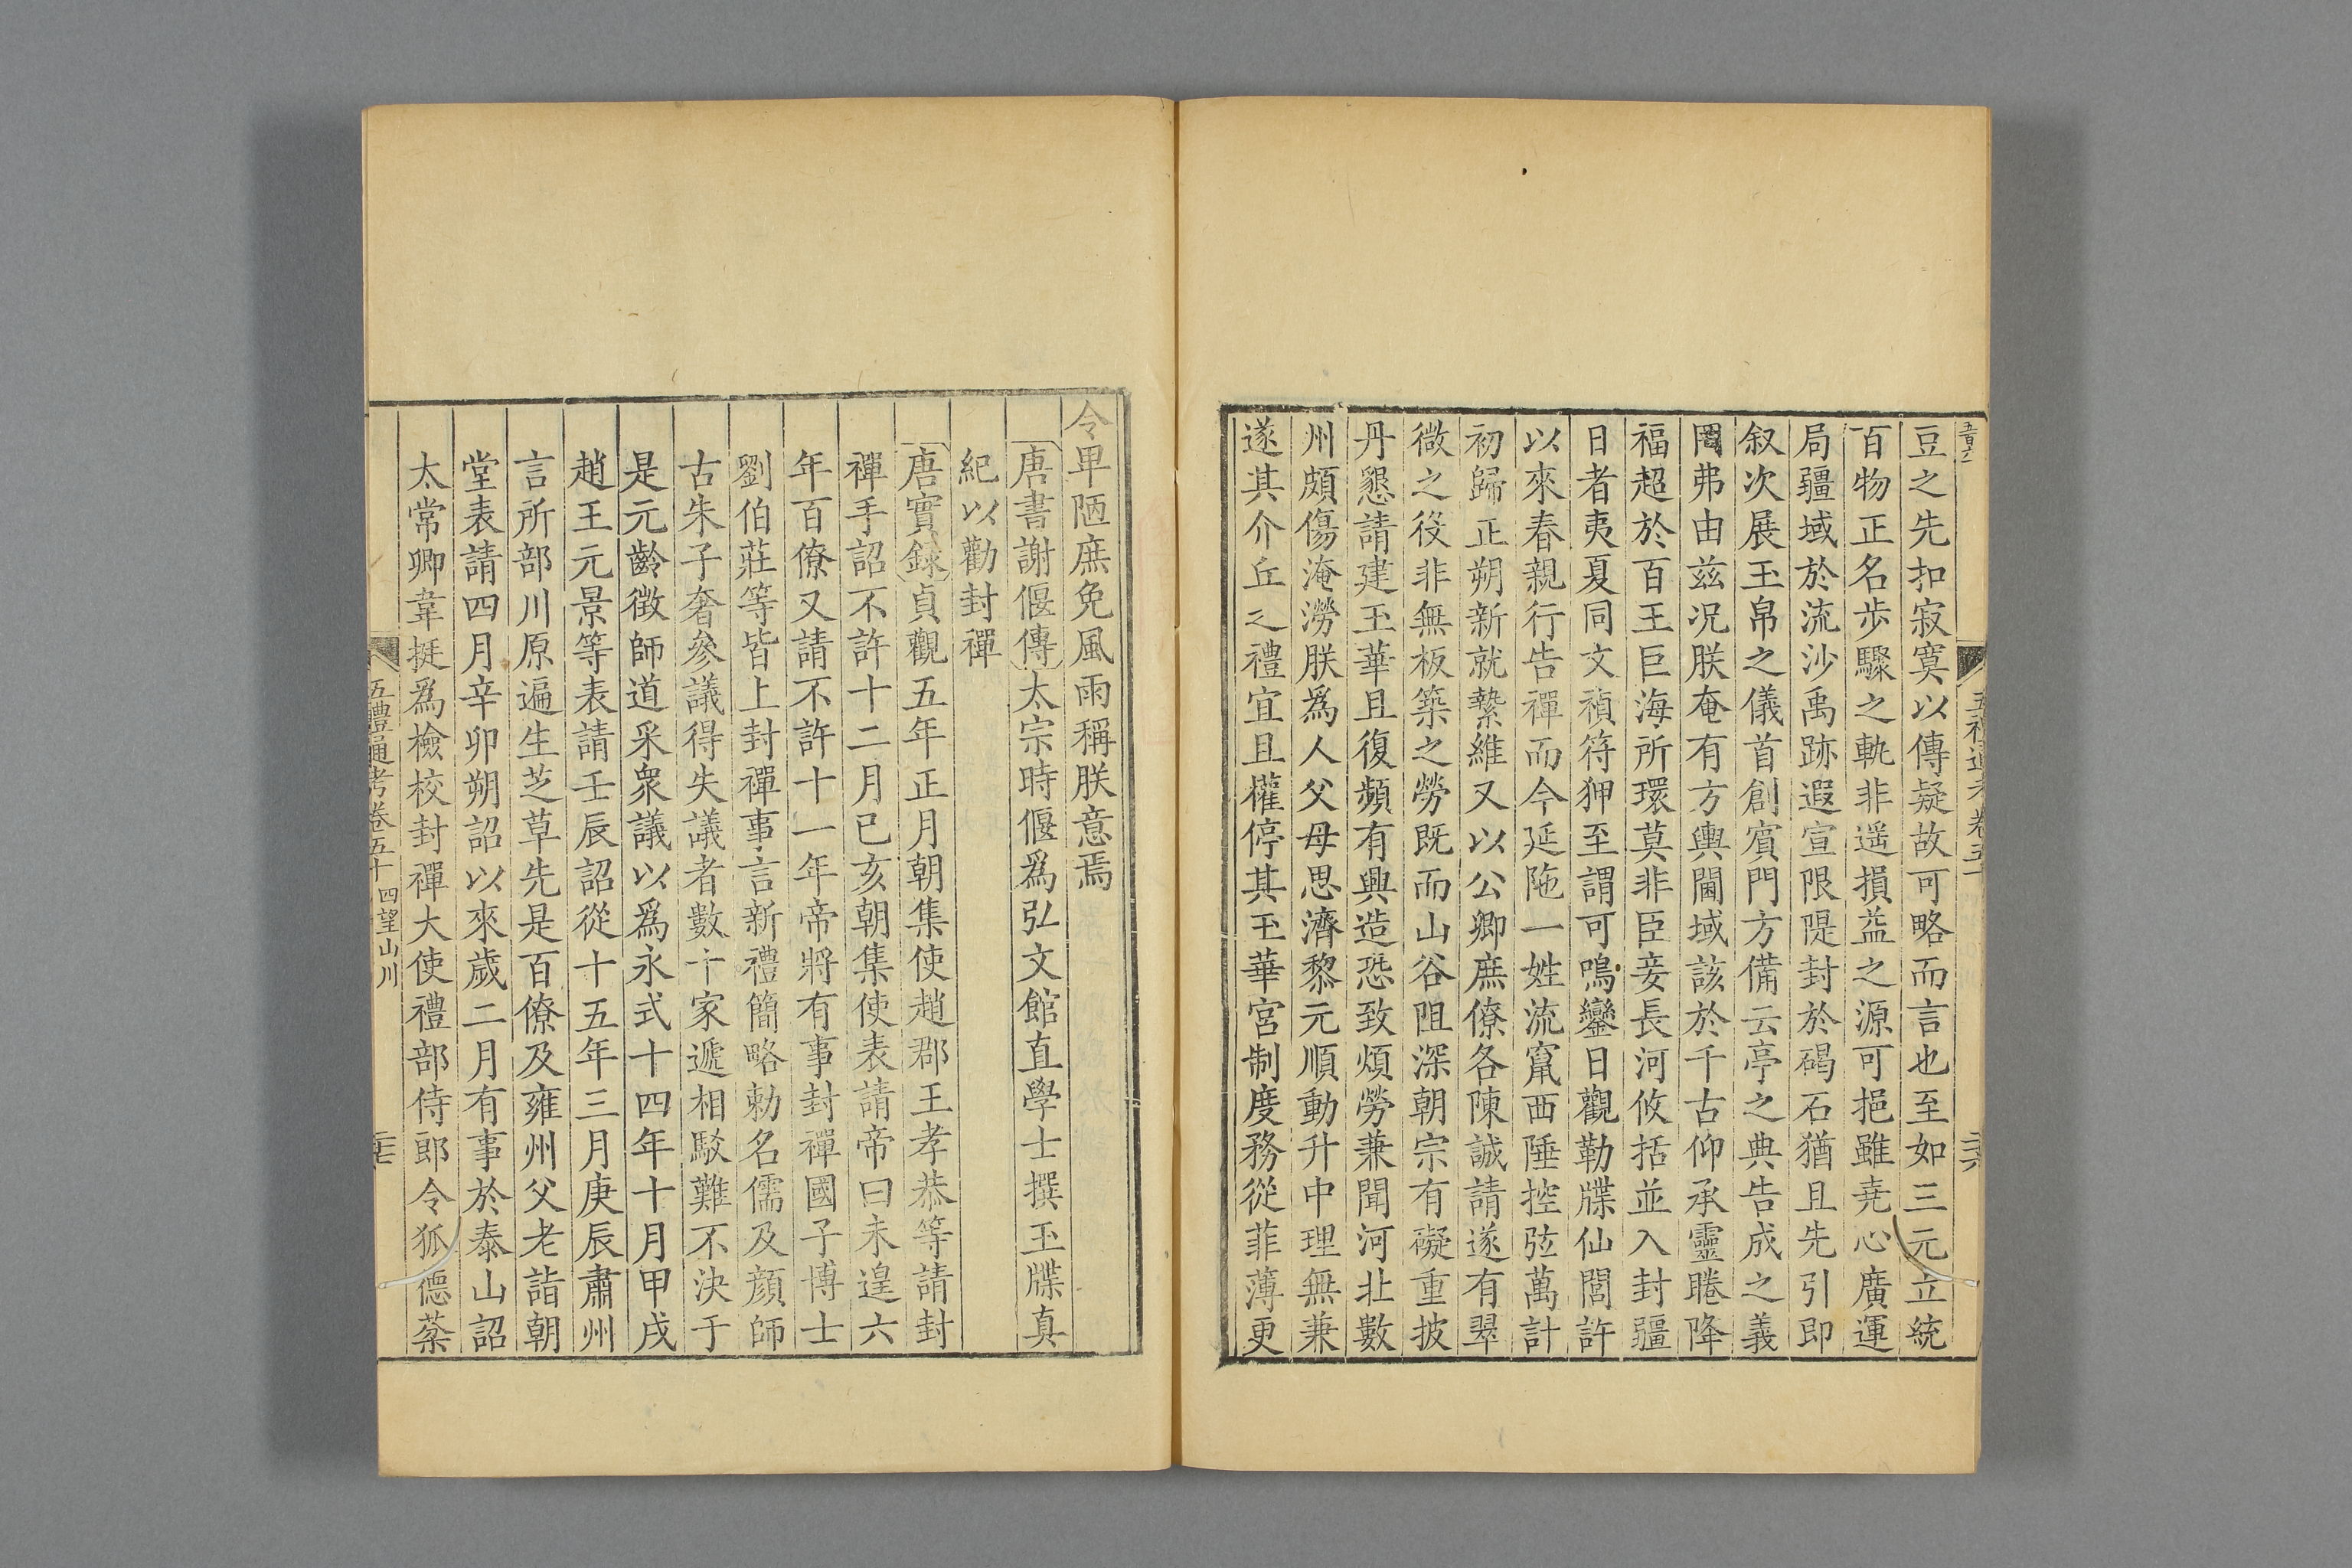 豆之先扣寂寞以傳疑故可略而言也至如三元立統
百物正名步驟之軌非遥損益之源可挹雖堯心廣運
局疆域於流沙禹跡遐宣限隄封於碣石猶且先引即
叙次展玉帛之儀首創賓門方備云亭之典告成之義
罔弗由兹况朕奄有方輿闔域該於千古仰承靈睠降
福超於百王巨海所環莫非臣妾長河攸括並入封疆
日者夷夏同文禎符狎至謂可鳴鑾日觀勒牒仙閭許
以來春親行告禪而今延陁一姓流竄西陲控弦萬計
初歸正朔新就縶維又以公卿庶僚各陳誠請遂有翠
微之役非無板築之勞既而山谷阻深朝宗有礙重披
丹懇請建玉華且復頻有興造恐致煩勞兼聞河北數
州頗傷淹澇朕爲人父母思濟黎元順動升中理無兼
遂其介丘之禮宜且權停其玉華宮制度務從菲薄更
令卑陋庶免風雨稱朕意焉
唐書謝偃傳太宗時偃爲弘文館直學士撰玉牒真
紀以勸封禪
唐實錄貞觀五年正月朝集使趙郡王孝恭等請封
禪手詔不許十二月己亥朝集使表請帝曰未遑六
年百僚又請不許十一年帝將有事封禪國子博士
劉伯莊等皆上封禪事言新禮簡略勅名儒及顔師
古朱子奢參議得失議者數十家遞相駁難不決于
是元齡徴師道采衆議以爲永式十四年十月甲戌
趙王元景等表請壬辰詔從十五年三月庚辰肅州
言所部川原遍生芝草先是百僚及雍州父老詣朝
堂表請四月辛卯朔詔以來歲二月有事於泰山詔
太常卿韋挺爲檢校封禪大使禮部侍郎令狐德棻
五禮通考卷五十 四望山川